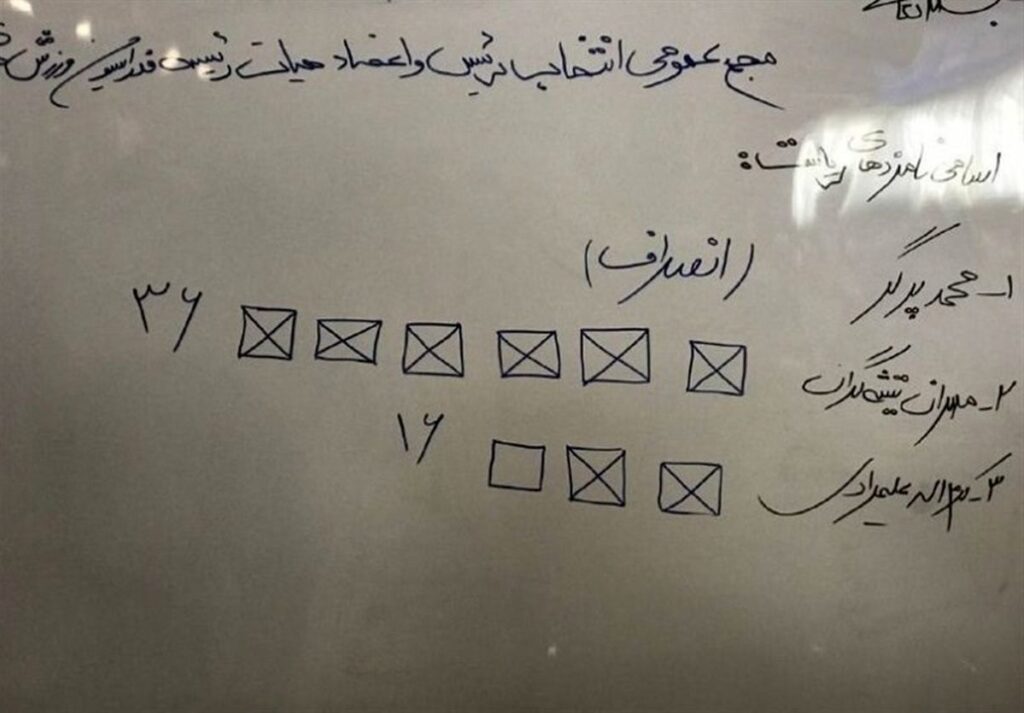 مجمع عمومی انتخاب رئیس و اعضاء هیات رئیسه فدراسیون ورزش
اسامی نامزدهای ریاست:
۱- محمد پرگر (انصراف)
۲- مهران تیشه گران ۳۶
۳- کرم اله علیمرادی ۱۶